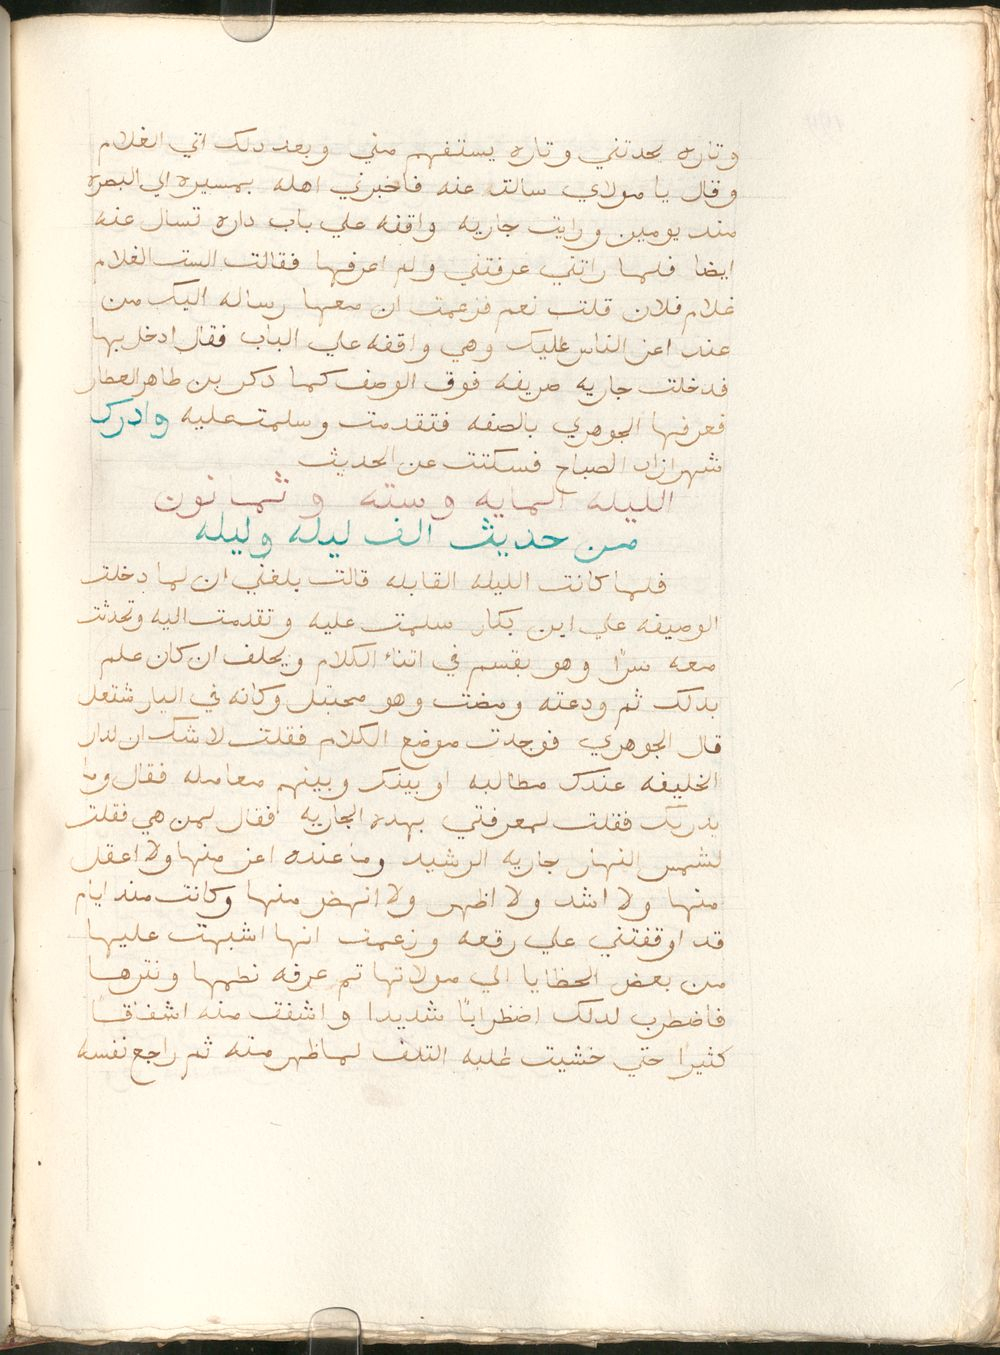 وتاره يحدتني وتاره يستفهم مني وبعد دلك اتي الغلام
وقال يا مولاي سالت عنه فاخبرني اهله بمسيره الي البصره
مند يومين ورايت جاريه واقفه علي باب داره تسال عنه
ايضا فلما راتني عرفتني ولم اعرفها فقالت الست الغلام
غلام فلان قلت نعم فزعمت ان معها رساله اليك من
عند اعز الناس عليك وهي واقفه علي الباب فقال ادخل بها
فدخلت جاريه ضريفه فوق الوصف كما دكر بن طاهر العطار
فعرفها الجوهري بالصفه فتقدمت وسلمت عليه وادرك
شهرازاد الصباح فسكتت عن الحديث
الليله المايه وسته وثمانون
من حديث الف ليله وليله
فلما كانت الليله القابله قالت بلغني ان لما دخلت
الوصيفه علي ابن بكار سلمت عليه وتقدمت اليه وتحدثت
معه سرًا وهو يقسم في اتناء الكلام ويحلف ان كان علم
بدلك ثم ودعته ومضت وهو محتبل وكانه في اليار شتعل
قال الجوهري فوجدت موضع الكلام فقلت لا شك ان لدار
الخليفه عندك مطالبه او بينك وبينهم معامله فقال وما
يدريك فقلت لمعرفتي بهده الجاريه فقال لمن هي فقلت
لشمس النهار جاريه الرشيد وما عنده اعز منها ولا اعقل
منها ولا اشد ولا اظهر ولا انهض منها وكانت مند ايام
قد اوقفتني علي رقعه وزعمت انها اشبهت عليها
من بعض الحظايا الي مولاتها تم عرفه نظمها ونترها
فاضطرب لدلك اضظرابًا شديدا واشفقت منه اشفاقًا
كثيرًا حتي خشيت عليه التلف لما ظهر منه ثم راجع نفسه